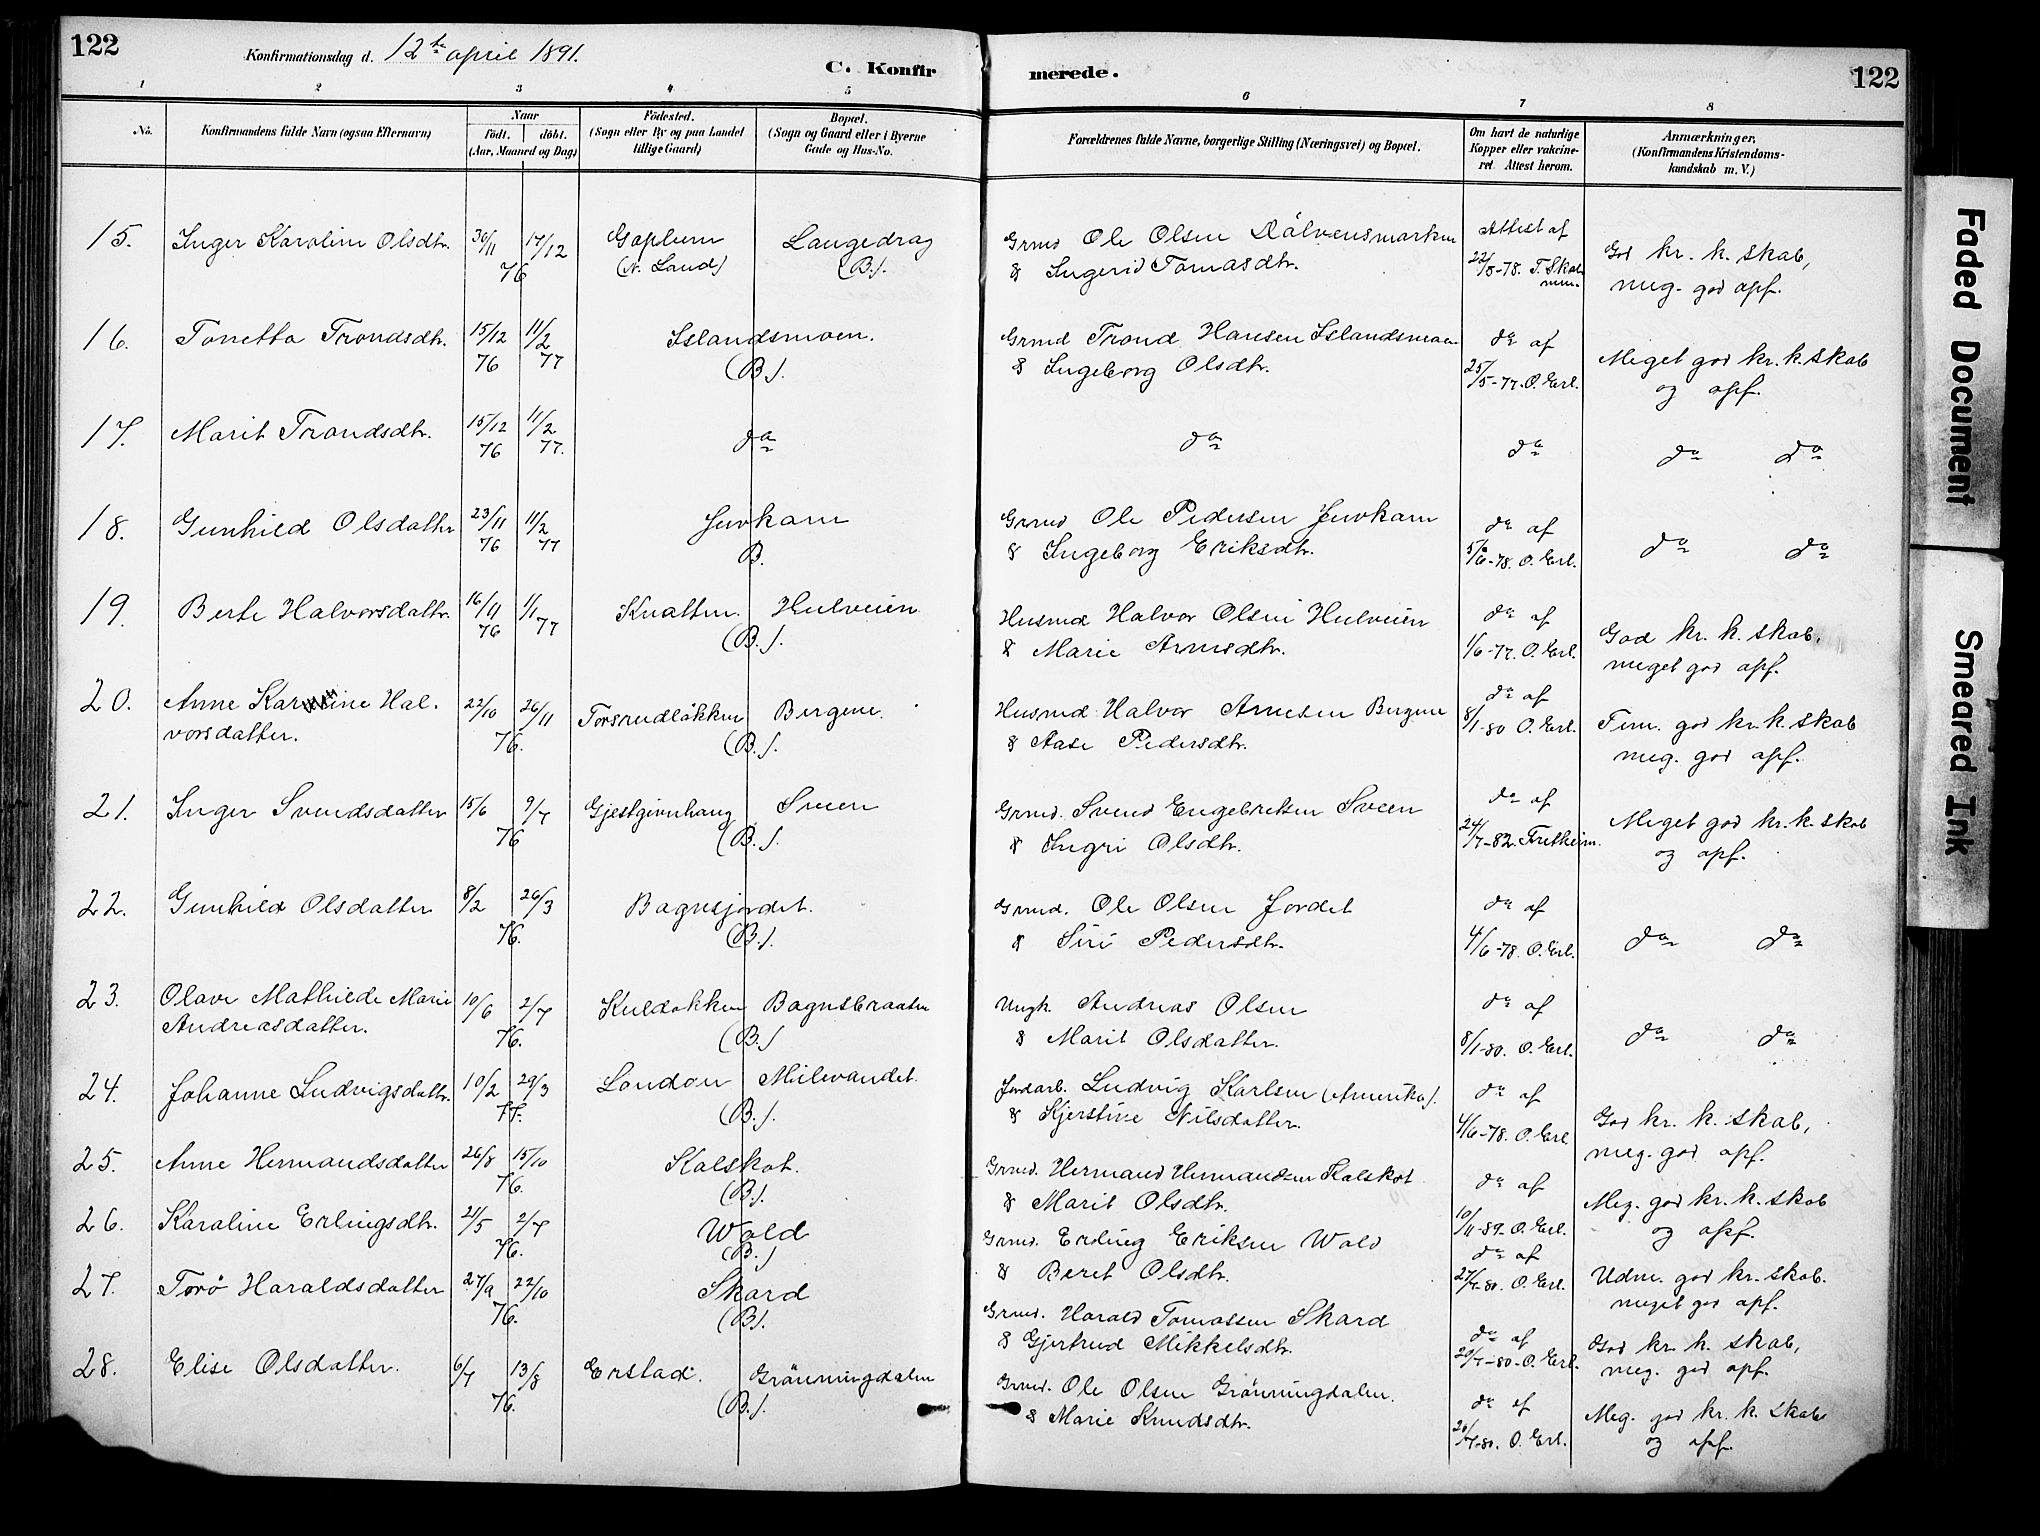 122
Konfirmationsdag d. 12te april 1891.
C. Konfir
merede.
122
1 2 3 4 5 6 7 8
No.
Konfirmandens fulde Navn (ogsaa Efternavn)
Naar
født. døbt.
(Aar, Maaned og Dag)
Fødested.
(Sogn eller By og paa Landet
tillige Gaard)
Bopæl.
(Sogn og Gaard eller i Byerne
Gade og Hus-No.
Forældrenes fulde Navne, borgerlige Stilling (Næringsvei) og Bopæl.
Om havt de naturlige
Kopper eller vakcine-
ret. Attest herom.
Anmærkninger,
(Konfirmandens Kristendoms-
kundskab m. V.)
15. Inger Karoline Olsdtr. 30/11 17/12 Goplum Langedrag Grmd Ole Olsen Attest af God kr. k. skab,
76 (N. Land) (B.). & Ingerid Tomasdtr. 22/8-78. T. meg. god opf.
16. Tonetta Trondsdtr. 15/12 11/2 Islandsmoen. Grmd Trond Hansen Islandsmoen do af Meget god kr. k. skab
76 77 (B.). & Ingeborg Olsdtr. 25/5-77. O. Erl. og opf.
17. Marit Trondsdtr. 15/12 11/2 do do do do do
76 77.
18. Gunhild Olsdatter 23/11 11/2 Juvkam Grmd Ole Pedersen Juvkam do af do do
76 77 B. & Ingeborg Eriksdtr. 5/6-78. O. Erl.
19. Berte Halvorsdattr. 16/11 1/1 Knatten. Hulveien Husmd Halvor Olsen Hulveien do af God kr. k. skab,
76 77 (B.). & Marie Arnesdtr. 1/6-77. O. Erl. meget god opf.
20. Anne Karoline Hal- 22/10 26/11 Torsrudløkken Bergene. Husmd Halvor Arnesen Bergene do af Tem. god kr. k. skab
vorsdatter. 76. (B.). & Aase Pedersdtr. 8/1-80 O. Erl. meg. god opf.
21. Inger Svendsdatter 15/6 9/7 Gjestgiverhaug Sveen Grmd. Svend Engebretsen Sveen do af Meget god kr. k. skab
76 (B.). & Ingri Olsdtr. 24/7-82. Fretheim. og opf.
22. Gunhild Olsdatter 8/2 26/3 Bagnsjordet. Grmd. Ole Olsen Jordet do af do do
76. (B.). & Siri Pedersdtr. 4/6-78. O. Erl.
23. Olave Mathilde Marie 10/6 2/7 Bagnsbraaten Ungk. Andreas Olsen do af do do
Andreasdatter. 76. (B.) & Marit Olsdatter. 8/1-80. O. Erl.
24. Johanne Ludvigsdattr. 10/2 29/3 London Milevandet. Jordarb. Ludvig Karlsen (Amerika). do af God kr. k. skab,
77. (B.). & Kjerstine Nilsdatter. 4/6-78. O. Erl meg. god opf.
25. Anne Hermandsdatter 26/8 15/10 Kalskot. Grmd. Hermand Hermandsen Kalskot do af Meg. god kr. k. skab
76. (B.). & Marit Olsdtr. 10/11-89. O. Erl. og opf.
26. Karoline Erlingsdtr. 21/5 2/7 Wold Grmd. Erling Eriksen Wold do af Udm. god kr. skab.
76. (B.) & Beret Olsdtr. 27/7-80. O. Erl. meget god opf.
27. Torø Haraldsdatter 27/9 22/10 Skard Grmd. Harald Tomassen Skard do af God kr. k. skab,
76. (B). & Gjertrud Mikkelsdtr. 20/7-80-O. Erl. meg. god opf.
28. Elise Olsdatter. 6/7 13/8 Erstad. Grönningdalen Grmd. Ole Olsen Grönningdalen. do af Meg. god kr. k. skab
76. (B.). & Marie Knudsdtr. 20/7-80. O. Erl. og opf.
Faded Document
Smeared Ink